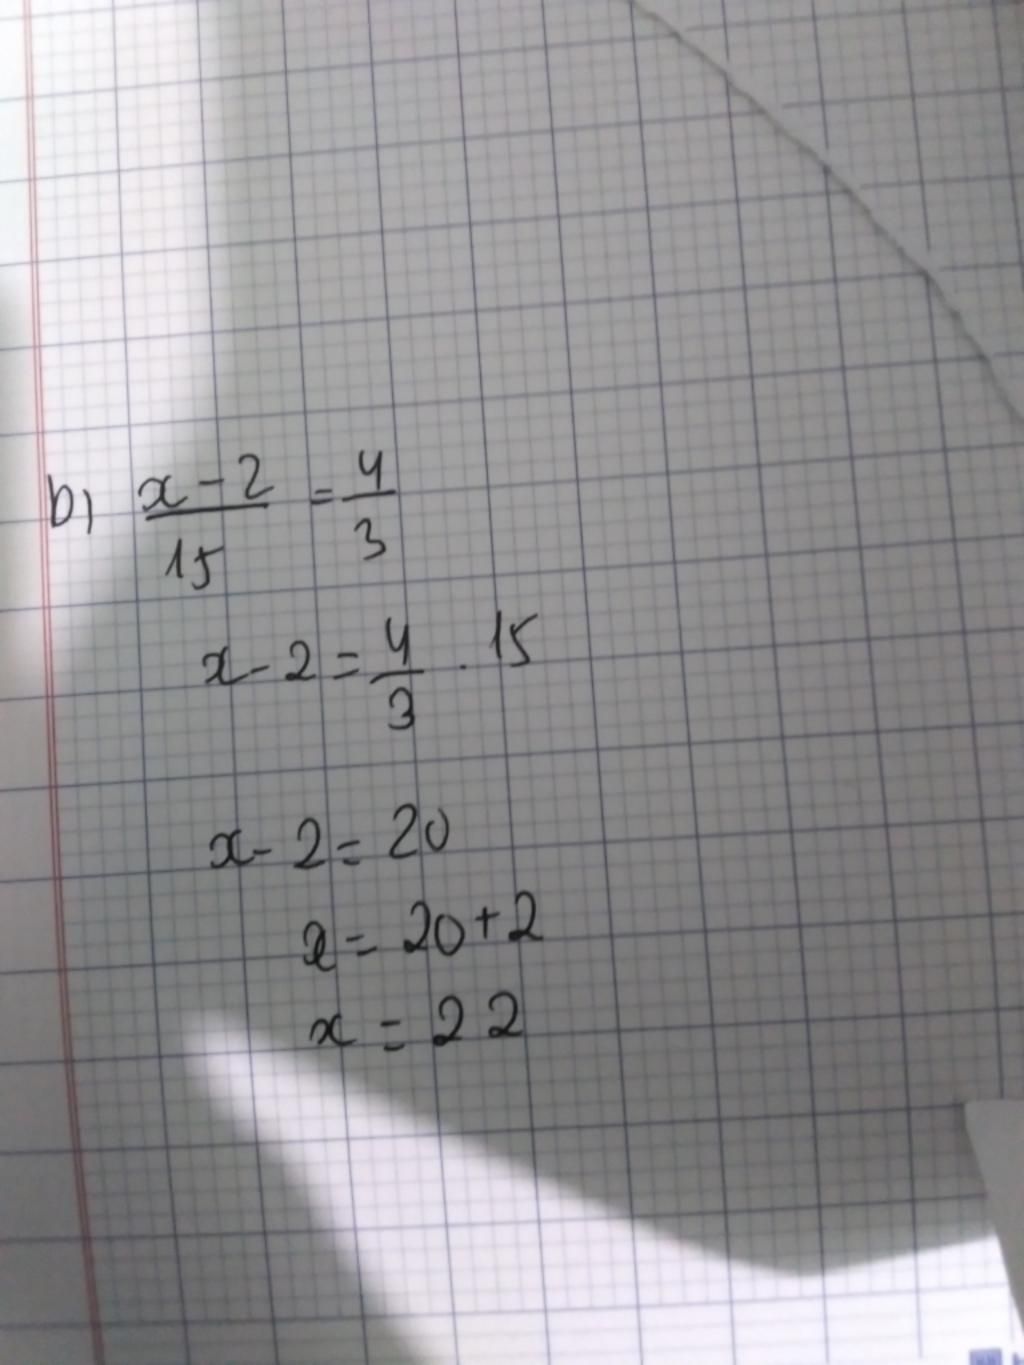 b) x - 2 / 15 = 4 / 3
x - 2 = 4 / 3 . 15
x - 2 = 20
x = 20 + 2
x = 22